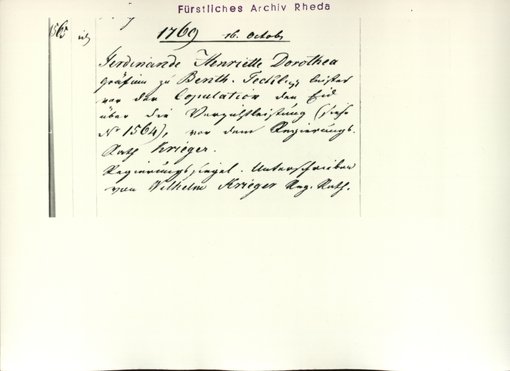 Fürstliches Archiv Rheda
1769 16. Octob.
1565
Ferdinande Henriette Dorothea
Gräfinn zu Benth. Tecklbg leistet
vor der Copulation den Eid
über die Verzichtleistung (siehe
№ 1564), vor dem Regierungs-
Rath Krieger.
Regierungssiegel. Unterschrieben
von Wilhelm Krieger Reg. Rath.